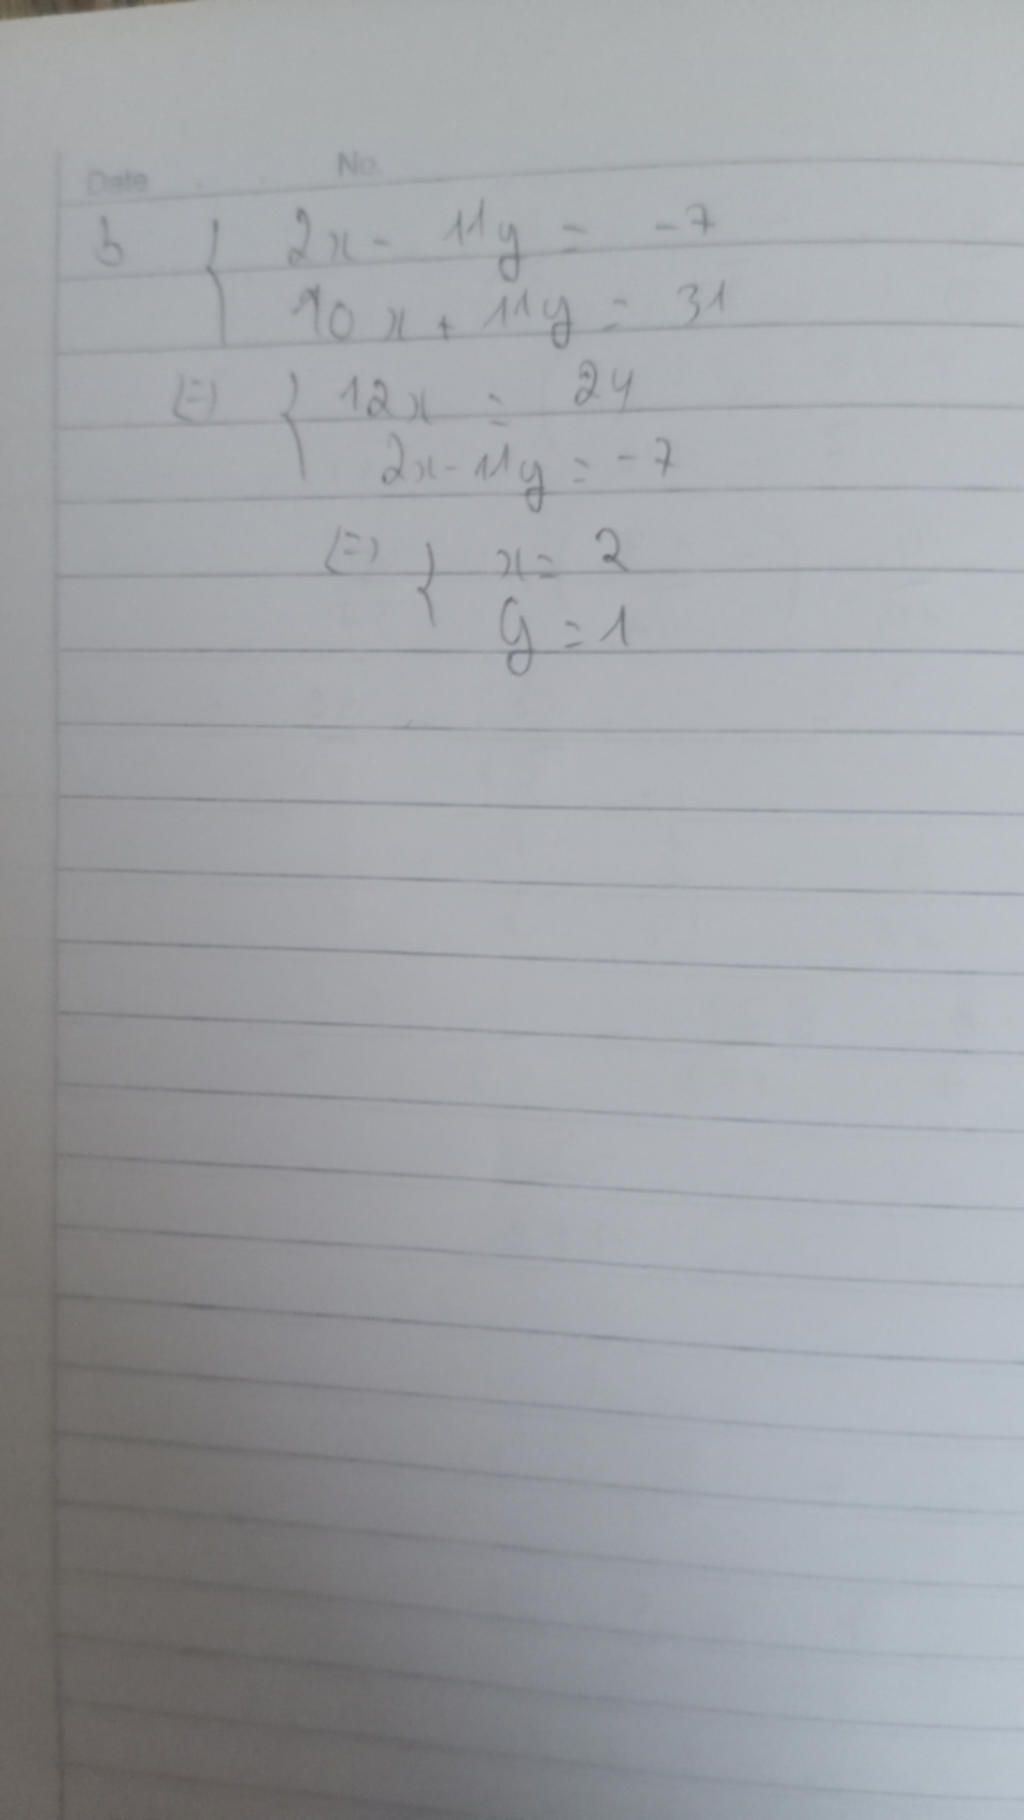 Date No.
b { 2x - 11y = -7
10x + 11y = 31
(=) { 12x = 24
2x - 11y = -7
(=) { x = 2
y = 1